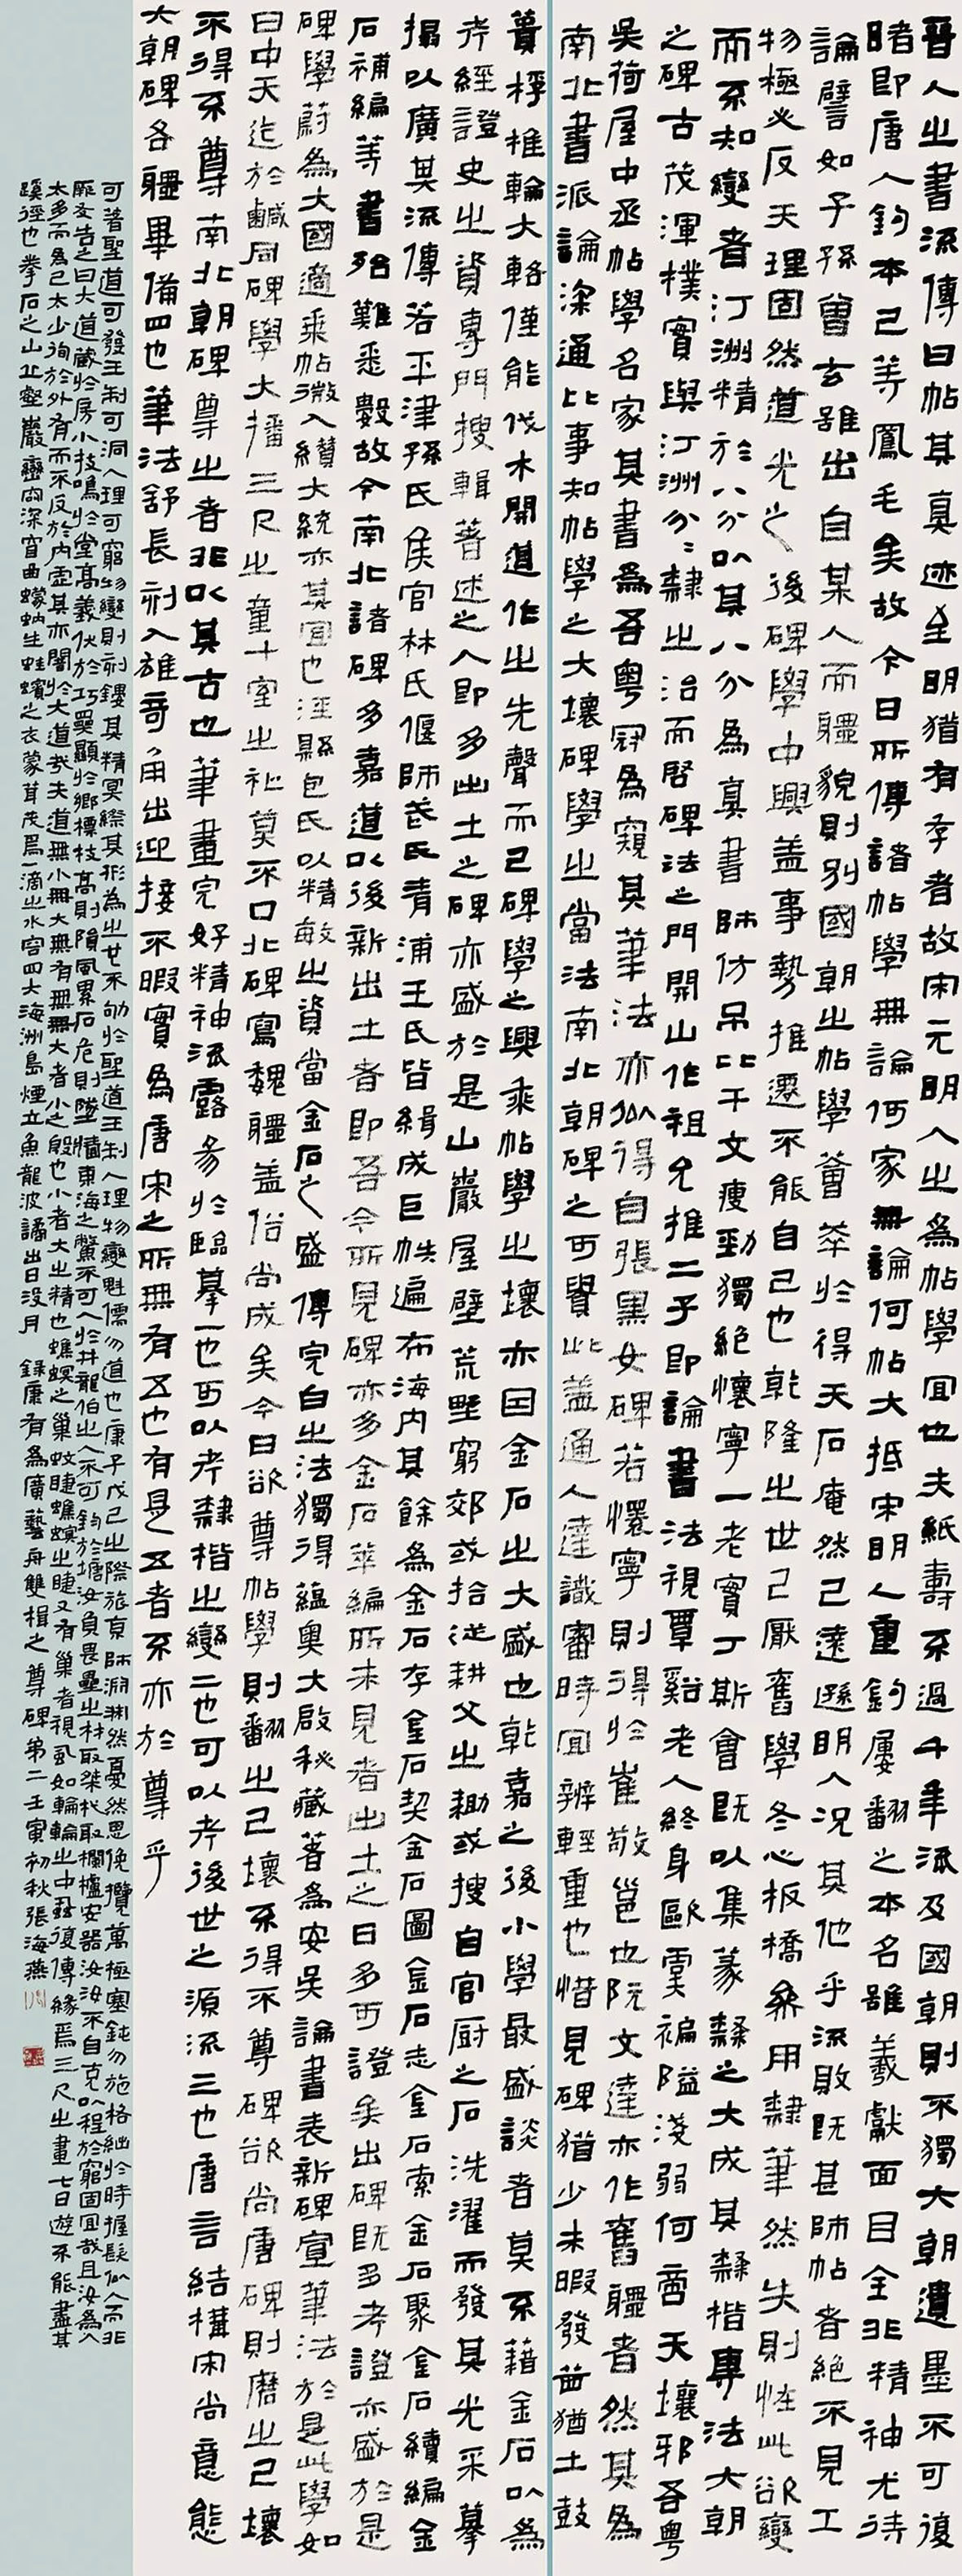 晉人之書流傳曰帖其真迹至明猶有存者故宋元明人之為帖學宜也夫紙壽不過千年流及國朝則不獨六朝遺墨不可復
睹即唐人鈎本已等鳳毛矣故今日所傳諸帖學無論何家無論何帖大抵宋明人重鈎屢翻之本名雖羲獻面目全非精神尤待
論譬如子孫曾玄雖出自某人而體貌則別國朝之帖學薈萃於得天石庵然已遠遜明人況其他乎流敗既甚師帖者絕不見工
物極必反天理固然道光之後碑學中興蓋事勢推遷不能自已也乾隆之世已厭舊學冬心板橋參用隸筆然失則怪此欲變
而不知變者汀洲精於八分以其八分為真書師仿吊比干文瘦勁獨絕懷寧一老實丁斯會既以集篆隸之大成其隸楷專法六朝
之碑古茂渾樸實與汀洲分分隸之治而啓碑法之門開山作祖允推二子即論書法視覃谿老人終身歐虞褊隘淺弱何啻天壤邪吾粵
吳荷屋中丞帖學名家其書為吾粵冠為窺其筆法亦似得自張黑女碑若懷寧則得於崔敬邕也阮文達亦作舊體者然其為
南北書派論深通比事知帖學之大壞碑學之當法南北朝碑之可貴此蓋通人達識審時宜辨輕重也惜見碑猶少未暇發啚猶土鼓
蕢桴椎輪大輅僅能伐木開道作之先聲而已碑學之興乘帖學之壞亦因金石之大盛也乾嘉之後小學最盛談者莫不藉金石以為
考經證史之資專門搜輯著述之人即多出土之碑亦盛於是山巖屋壁荒野窮郊或拾從耕父之鋤或搜自官厨之石洗濯而發其光采摹
搨以廣其流傳若平津孫氏侯官林氏偃師武氏青浦王氏皆緝成巨帙遍布海內其餘為金石存金石契金石圖金石志金石索金石聚金石續編金
石補編等書殆難悉數故今南北諸碑多嘉道以後新出土者即吾今所見碑亦多金石萃編所未見者出土之日多可證矣出碑既多考證亦盛於是
碑學蔚為大國適乘帖微入纘大統亦其宜也涇縣包氏以精敏之資當金石之盛傳完白之法獨得蘊奧大啟秘藏著為安吳論書表新碑宣筆法於是此學如
日中天迄於鹹同碑學大播三尺之童十室之社莫不口北碑寫魏體蓋俗尚成矣今日欲尊帖學則翻之已壞不得不尊碑欲尚唐碑則磨之已壞
不得不尊南北朝碑尊之者非以其古也筆畫完好精神流露易於臨摹一也可以考隸楷之變二也可以考後世之源流三也唐言結構宋尚意態
六朝碑各體畢備四也筆法舒長刻入雄奇角出迎接不暇實為唐宋之所無有五也有是五者不亦於尊乎
可著聖道可發王制可洞人理可窮物變則刻鏤其精冥綜其形為之也不劬於聖道王制人理物變魁儒勿道也康子戊己之際旅京師淵淵然憂然思俛攬萬極塞鈍勿施格絀於時握髮似人而非
厥友告之曰大道藏於房小技鳴於堂高義伏於巧奰顯於鄉標枝高則隕風累石危則墜牆東海之鱉不可入於井龍伯之人不可釣於塘汝負畏壘之材取桀杙取欄櫨安器汝汝不自克以程於窮固宜哉且汝為人
太多而為己太少徇於外有而不反於內虛其亦闇於大道哉夫道無小無大無有無無大者小之殷也小者大之精也蟭螟之巢蚊睫蟭螟之睫又有巢者視虱如輪輪之中虱復傅緣焉三尺之畫七日遊不能盡其
蹊徑也拳石之山丘壑巖巒窈深窅曲蠛蚋生蛙蠙之衣蒙茸茂焉一滴之水容四大海洲島煙立魚龍波譎出日沒月 錄康有為廣藝舟雙楫之尊碑第二壬寅初秋張海燕